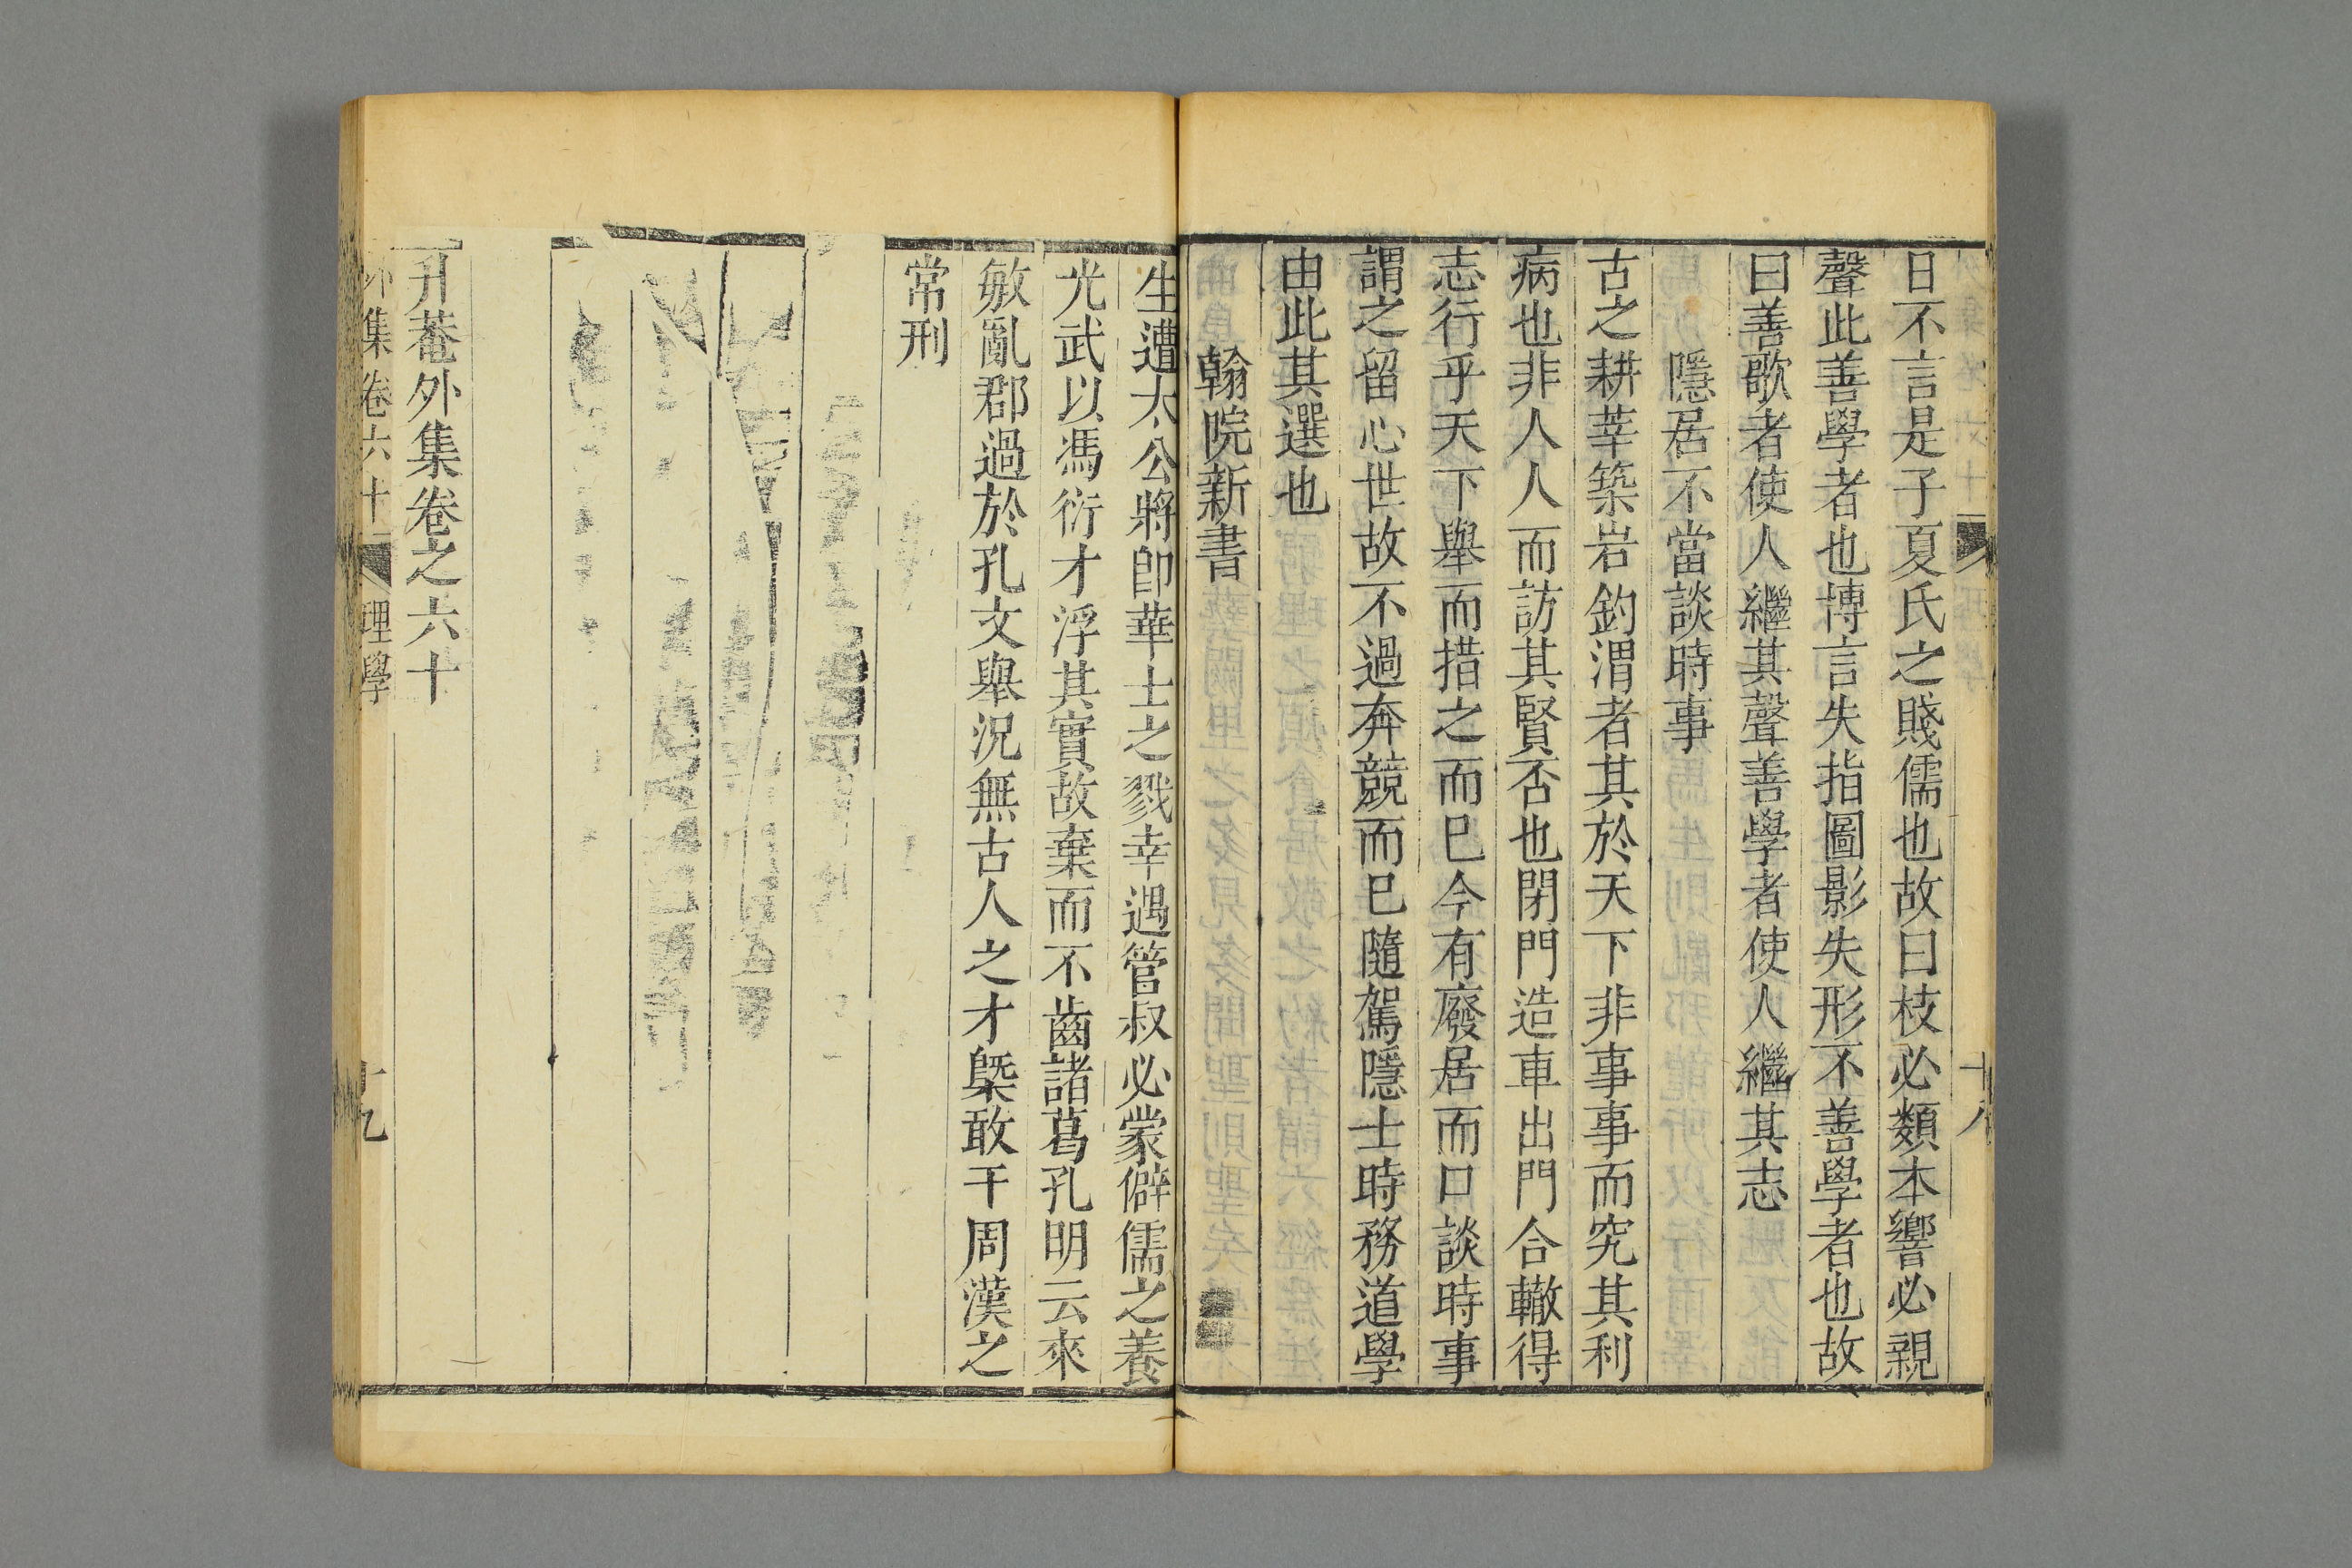 日不言是子夏氏之賤儒也故曰枝必類本響必親
聲此善學者也博言失指圖影失形不善學者也故
曰善歌者使人繼其聲善學者使人繼其志
隱居不當談時事
古之耕莘築岩釣渭者其於天下非事事而究其利
病也非人人而訪其賢否也閉門造車出門合轍得
志行乎天下舉而措之而已今有廢居而口談時事
謂之留心世故不過奔競而已隨駕隱士時務道學
由此其選也
翰院新書
生遭太公將卽華士之戮幸遇管叔必蒙僻儒之養
光武以馮衍才浮其實故棄而不齒諸葛孔明云來
敏亂郡過於孔文舉況無古人之才槩敢干周漢之
常刑
升菴外集卷之六十
外集卷六十 理學 十九